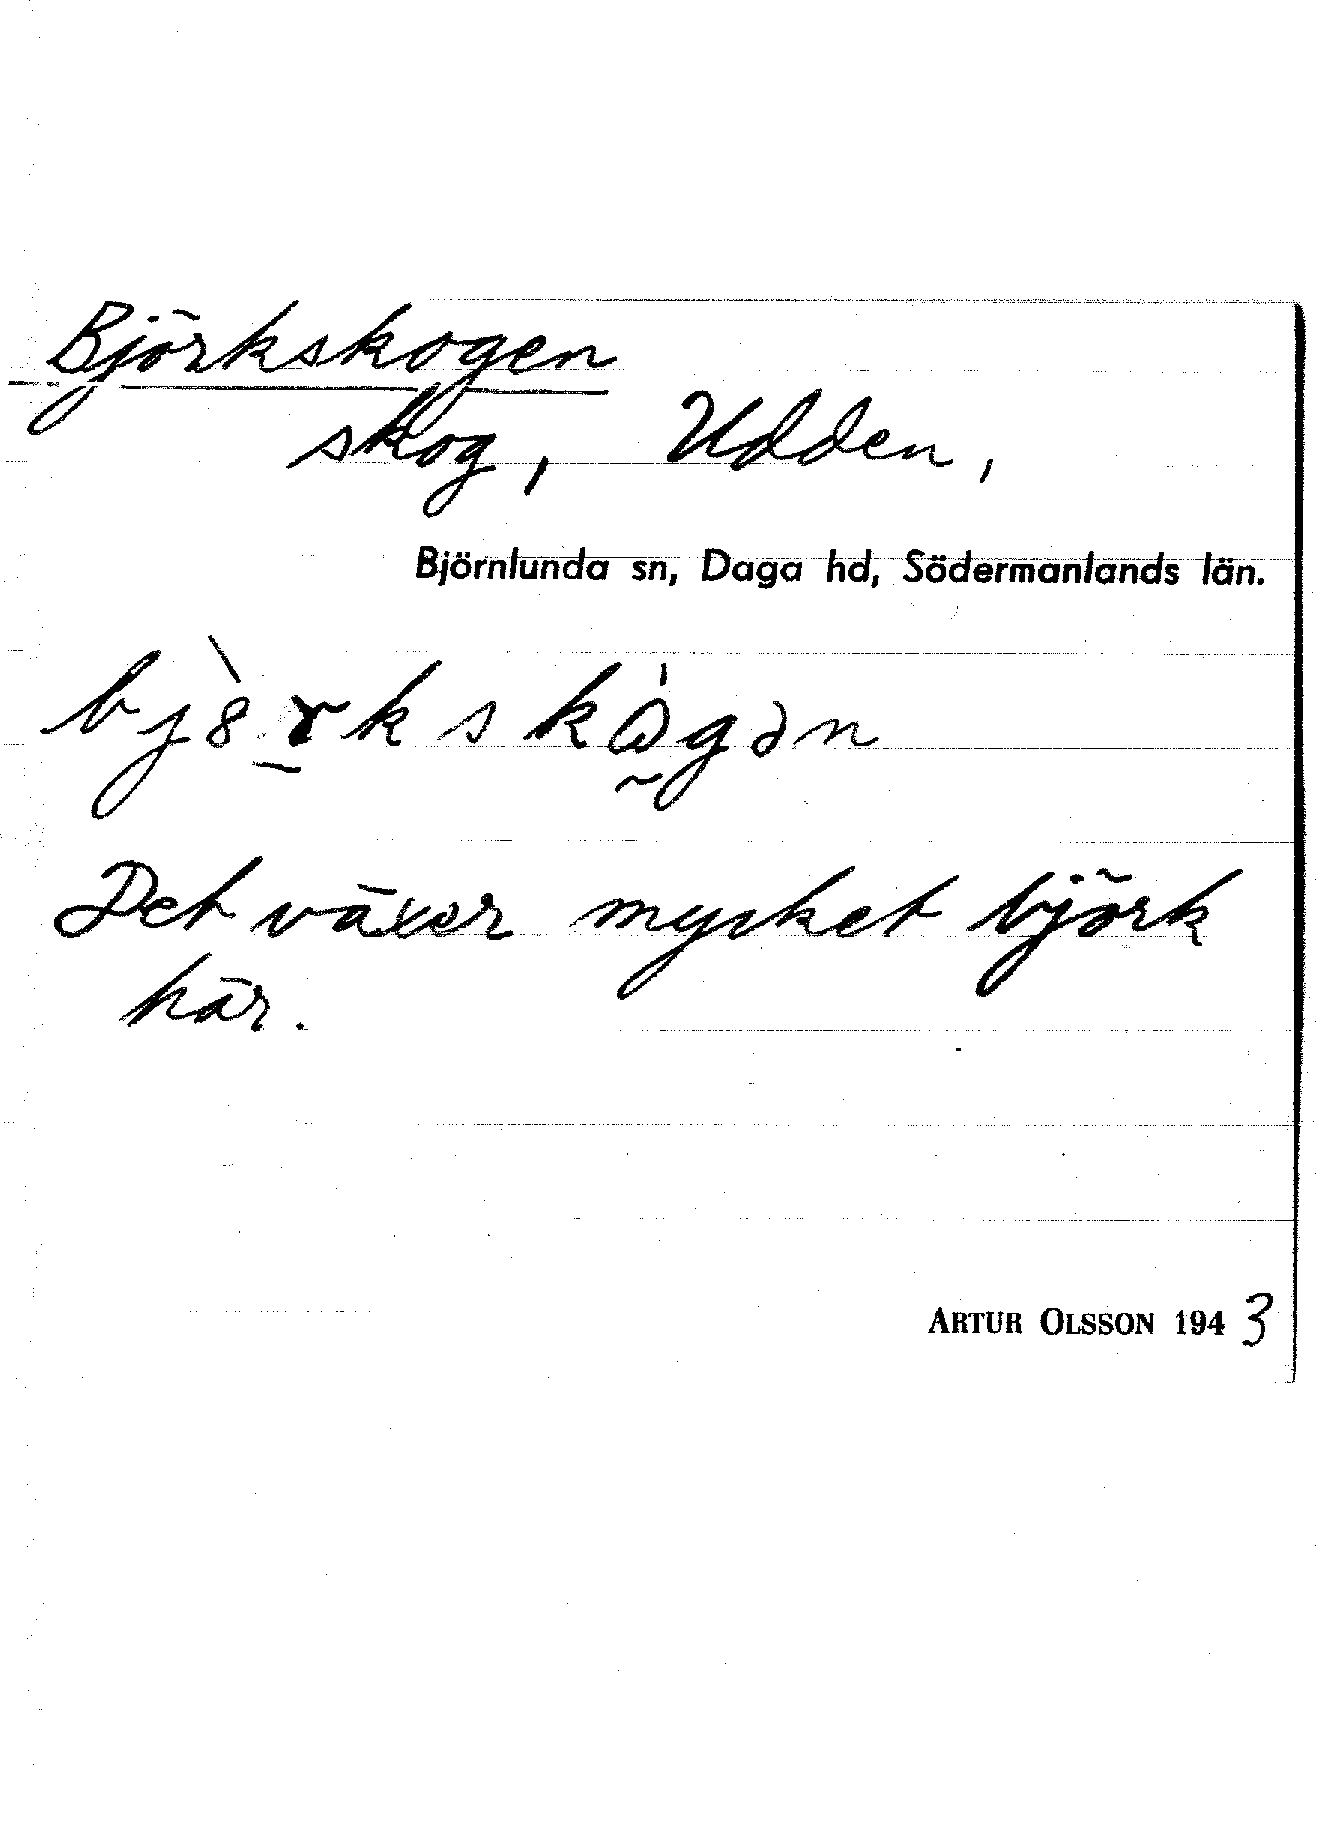 Björkskogen
skog, Udden,
Björnlunda sn, Daga hd, Södermanlands län.
bj8̀r̠kskὼ̰gən
Det växer mycket björk
här.
ARTUR OLSSON 1943